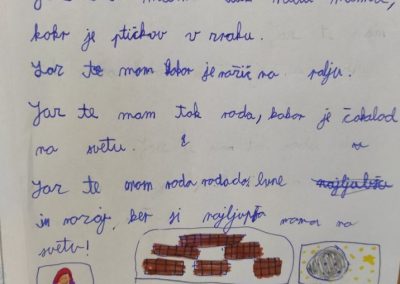 kokr je ptičkov v zraku.
Jaz te mam kokor je rožic na
Jaz te mam tok rada, kokor je čokolad
na svetu.
Jaz te mam rada rada do lune
na
in nazaj, ker si najljupša mama na
svetu!